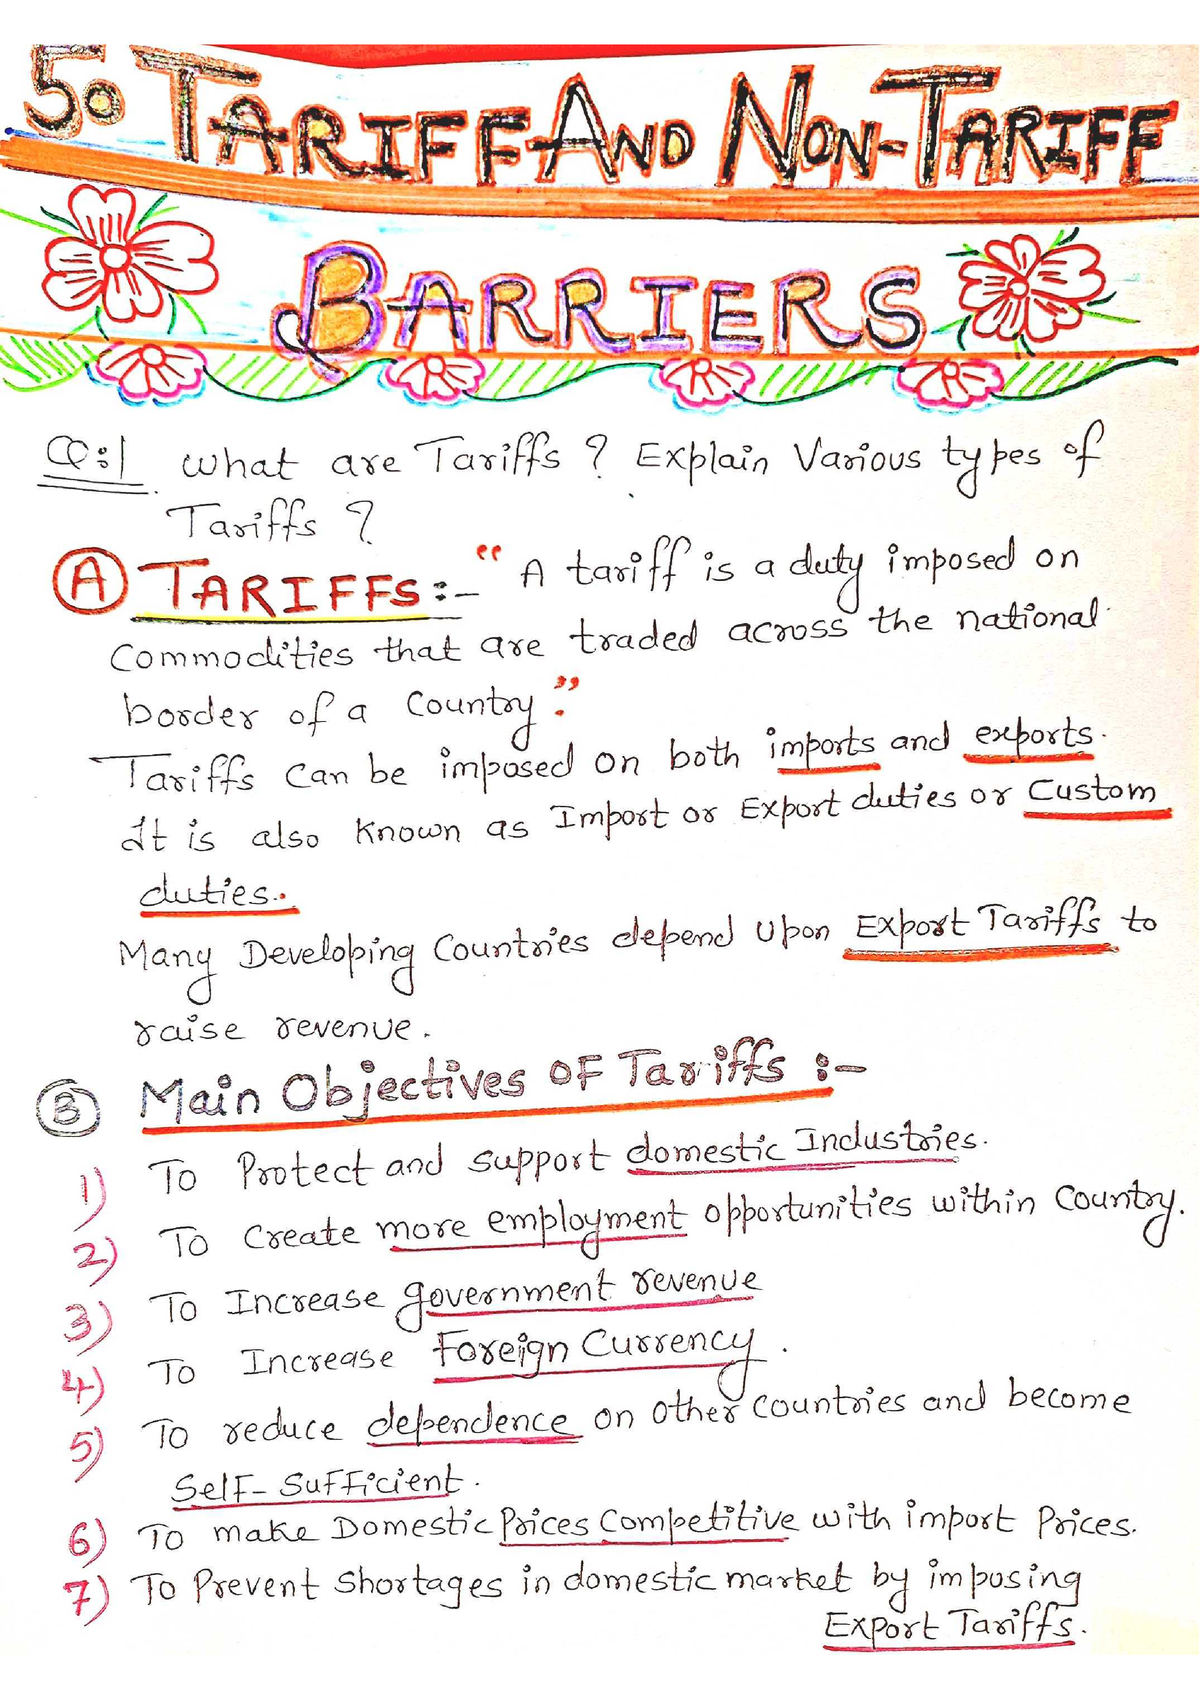 5. TARIFF AND NON-TARIFF
BARRIERS
Q:1 What are Tariffs? Explain Various types of
Tariffs?
A TARIFFS:- "A tariff is a duty imposed on
Commodities that are traded across the national
border of a Country".
Tariffs Can be imposed on both imports and exports.
It is also Known as Import or Export duties or Custom
duties.
Many Developing Countries depend Upon Export Tariffs to
raise revenue.
B Main Objectives OF Tariffs :-
1) To Protect and support domestic Industries.
2) To Create more employment opportunities within Country.
3) To Increase government revenue
4) To Increase Foreign Currency.
5) To reduce dependence on other Countries and become
Self-Sufficient.
6) To make Domestic Prices Competitive with import Prices.
7) To Prevent Shortages in domestic market by imposing
Export Tariffs.